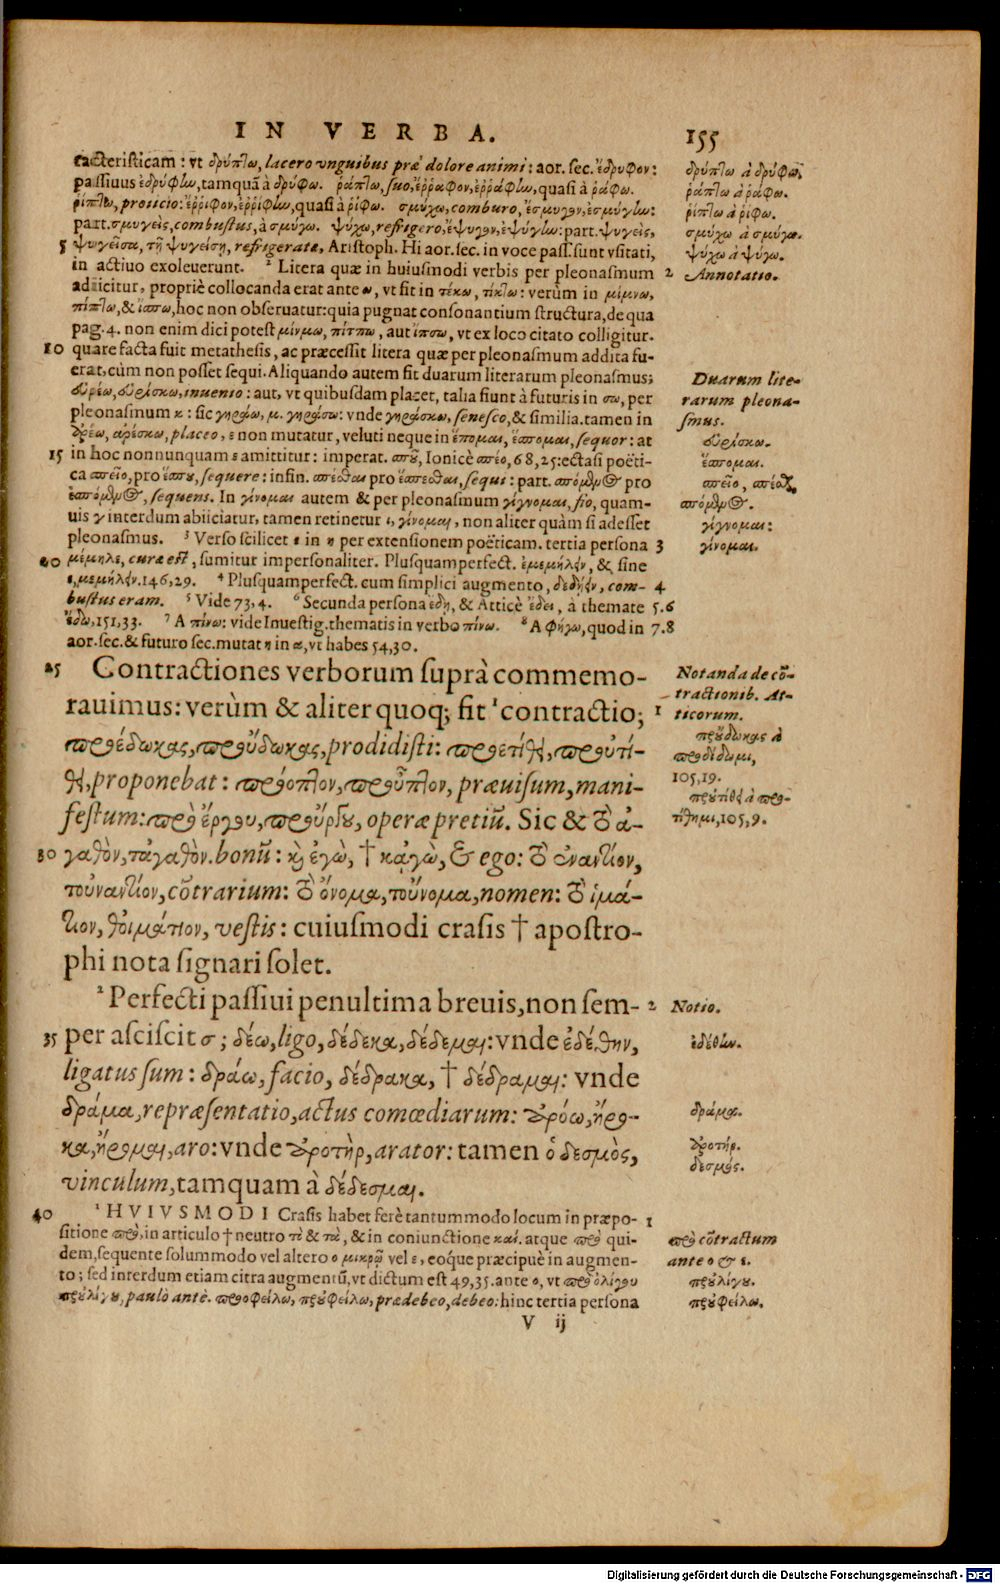 IN VERBA. 155
racteristicam: vt δρύπτω, lacero vnguibus præ dolore animi: aor. sec. ἔδρυφον:
passiuus ἐδρύφίω, tamquã à δρύφω. ῥάπτω, suo, ἔῤῥαφον, ἐῤῥάφίω, quasi à ῥάφω.
ῥίπτω, proiicio: ἔῤῥιφον, ἐῤῥίφίω, quasi à ῥίφω. σμύχω, comburo, ἔσμυγον, ἐσμύγίω:
part. σμυγεὶς, combustus, à σμύγω. ψύχω, refrigero, ἔψυγον, ἐψύγίω: part. ψυγεὶς,
5 ψυγεῖσα, τῇ ψυγείσῃ, refrigeratæ, Aristoph. Hi aor. sec. in voce pass. sunt vsitati,
in actiuo exoleuerunt. ² Litera quæ in huiusmodi verbis per pleonasmum
adiicitur, propriè collocanda erat ante ω, vt fit in τέκω, τίκτω: verùm in μίμνω,
πίπτω, & ἴσπω, hoc non obseruatur: quia pugnat consonantium structura, de qua
pag. 4. non enim dici potest μίνμω, πίτπω, aut ἴπσω, vt ex loco citato colligitur.
10 quare facta fuit metathesis, ac præcessit litera quæ per pleonasmum addita fu-
erat, cùm non posset sequi. Aliquando autem fit duarum literarum pleonasmus;
εὑρέω, εὑρίσκω, inuenio: aut, vt quibusdam placet, talia fiunt à futuris in σω, per
pleonasmum κ: sic γηράω, μ. γηράσω: vnde γηράσκω, senesco, & similia. tamen in
ἀρέω, ἀρέσκω, placeo, ε non mutatur, veluti neque in ἕπομαι, ἕσπομαι, sequor: at
15 in hoc nonnunquam ε amittitur: imperat. σποῦ, Ionicè σπέο, 68, 25: ectasi poëti-
ca σπεῖο, pro ἕσπου, sequere: infin. σπέσθαι pro ἕσπεσθαι, sequi: part. σπόμενος pro
ἑσπόμενος, sequens. In γίνομαι autem & per pleonasmum γίγνομαι, fio, quam-
uis γ interdum abiiciatur, tamen retinetur ι, γίνομαι, non aliter quàm si adesset
pleonasmus. ³ Verso scilicet ε in η per extensionem poëticam. tertia persona
20 μέμηλε, curæ est, sumitur impersonaliter. Plusquamperfect. ἐμεμήλειν, & sine
ε, μεμήλειν. 146, 29. ⁴ Plusquamperfect. cum simplici augmento, δεδήειν, com-
bustus eram. ⁵ Vide 73, 4. ⁶ Secunda persona ἔδη, & Atticè ἔδει, à themate
ἔδω, 151, 33. ⁷ A πίνω: vide Inuestig. thematis in verbo πίνω. ⁸ A φήγω, quod in
aor. sec. & futuro sec. mutat η in α, vt habes 54, 30.
25 Contractiones verborum suprà commemo-
rauimus: verùm & aliter quoq; fit ¹ contractio;
προέδωκας, προὔδωκας, prodidisti: προετίθει, προὐτί-
θει, proponebat: πρόοπτον, προὖπτον, præuisum, mani-
festum: πρὸ ἔργου, προὔργου, operæ pretiũ. Sic & τὸ ἀ-
30 γαθὸν, τἀγαθὸν. bonũ: καὶ ἐγὼ, † κἀγὼ, & ego: τὸ ἐναντίον,
τοὐναντίον, cõtrarium: τὸ ὄνομα, τοὔνομα, nomen: τὸ ἱμά-
τιον, θοἰμάτιον, vestis: cuiusmodi crasis † apostro-
phi nota signari solet.
² Perfecti passiui penultima breuis, non sem-
35 per asciscit σ; δέω, ligo, δέδεκα, δέδεμαι: vnde ἐδέθην,
ligatus sum: δράω, facio, δέδρακα, † δέδραμαι: vnde
δράμα, repræsentatio, actus comœdiarum: ἀρόω, ἤρο-
κα, ἤρομαι, aro: vnde ἀροτὴρ, arator: tamen ὁ δεσμὸς,
vinculum, tamquam à δέδεσμαι.
40 ¹ HVIVSMODI Crasis habet ferè tantummodo locum in præpo-
sitione πρὸ, in articulo † neutro τὸ & τὰ, & in coniunctione καί. atque πρὸ qui-
dem, sequente solummodo vel altero ο μικρῷ vel ε, eoq́ue præcipuè in augmen-
to; sed interdum etiam citra augmentũ, vt dictum est 49, 35. ante ο, vt πρὸ ὀλίγου
πρυλίγου, paulò antè. προοφείλω, προυφείλω, prædebeo, debeo: hinc tertia persona
V ij
δρύπτω à δρύφω.
ῥάπτω à ῥάφω.
ῥίπτω à ῥίφω.
σμύχω à σμύγω.
ψύχω à ψύγω.
2 Annotatio.
Duarum lite-
rarum pleona-
smus.
εὑρίσκω.
ἕσπομαι.
σπεῖο, σπέσθαι,
σπόμενος.
γίγνομαι:
γίνομαι.
3
4
5. 6
7. 8
Notanda de cõ-
tractionib. At-
1 ticorum.
προὔδωκας à
προδίδωμι,
105, 19.
προὐτίθει à προ-
τίθημι, 105, 9.
2 Notio.
ἐδέθην.
δράμα.
ἀροτήρ.
δεσμός.
1
πρὸ cõtractum
ante ο & ε.
προυλίγου.
προυφείλω.
Digitalisierung gefördert durch die Deutsche Forschungsgemeinschaft - DFG